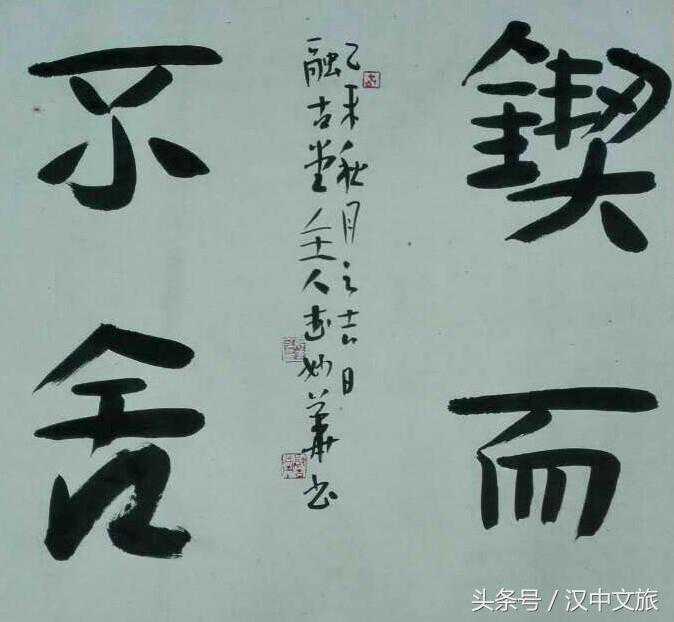 鍥而
乙未秋月之吉日
融古堂主人妙華书
不舍
头条号 / 汉中文旅